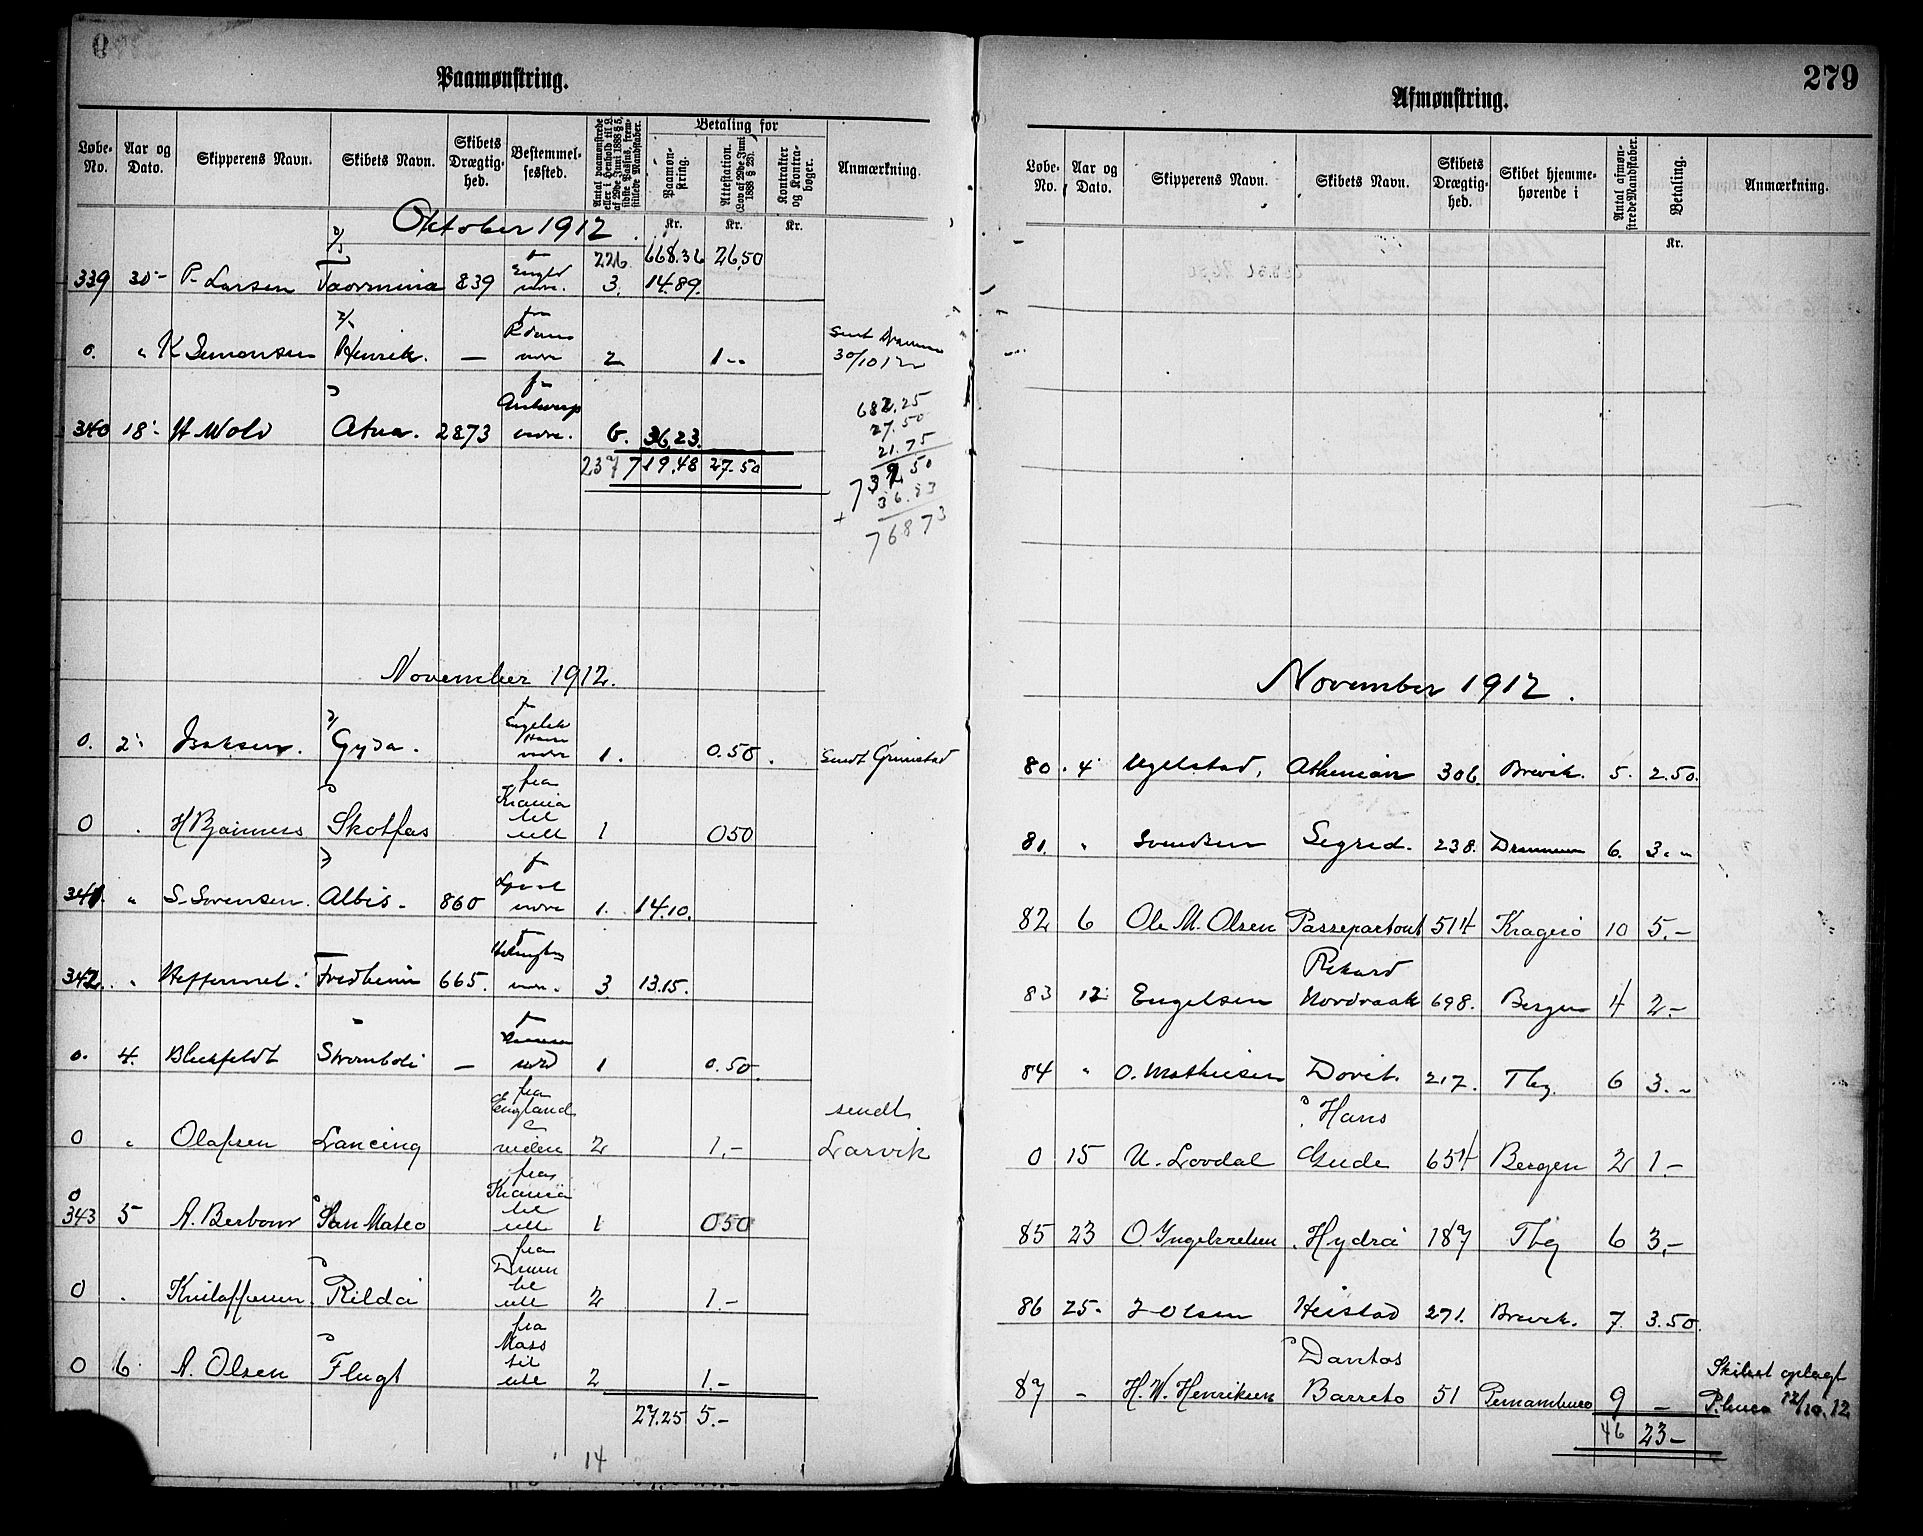 Paamønstring.
Løbe-No. Aar og Dato. Skipperens Navn. Skibets Navn. Skibets Drægtighed. Bestemmelsessted. Antal paamønstrede eller i Henhold til L. af 29de Juni 1888 § 5, sidste Passus, fremstillede Mandskaber. Betaling for Paamønstring. Attestation. (Lov af 29de Juni 1888 § 23). Kontrakter og Kontrabøger. Anmærkning.
Kr. Kr. Kr.
Oktober 1912
226. 668.36 26,50
339 30 P. Larsen Taormina 839 3. 14.89.
0. " K Simonsen Henrik. — 2 1 -- 30/10 12
340 18 H Wold Atna. 2873 Antwerp 6. 36.23.
237 719.48 27.50
682.25
27.50
21.75
732 50
36.23
+ 76873
November 1912.
0. 2 Isaksen. Gyda. 1. 0.50. Sendt Grimstad
0 . Skotfos fra Krania til 1 050
341. " S. Sørensen. Albis. 860 1. 14.10.
342. " Fredheim 665. 3 13.15.
0. 4. Blickfeldt Stromboli — 1 0.50.
0 " Olafsen Lancing fra England 2 1,- sendt Larvik
0
343 5 San Mateo fra Krania til 1 050
0 . Rilda fra Dramn til 2 1.-
0 6 A. Olsen Flugt fra Moss til 2 1.-
27.25 5.-
14
279
Afmønstring.
Løbe-No. Aar og Dato. Skipperens Navn. Skibets Navn. Skibets Drægtighed. Skibet hjemmehørende i Antal afmønstrede Mandskaber. Betaling. Anmærkning.
Kr.
November 1912.
80. 4 Ugelstad, Athenian 306. Brevik. 5. 2.50.
81. " Svendsen Sigrid. 238. Drammen 6. 3. "
82 6 Ole M. Olsen Passepartout 514 Kragerø 10 5.-
83 12 Engelsen Rikard Nordraak 698. Bergen 4 2.-
84 " O. Mathiesen Dovit. 217. Tbg. 6 3.-
0 15 U. Lovdal Hans Gude 654 Bergen 2 1.-
85 23 O. Yngebretsen Hydra 187 Tbg 6 3,-
86 25. J Olsen Heistad 271. Brevik. 7. 3.50.
87 - H. W. Henriksen Dantas Barreto 51 Pernambuco 9 — Skibet oplagt P.buco 12/10.12
46 23-